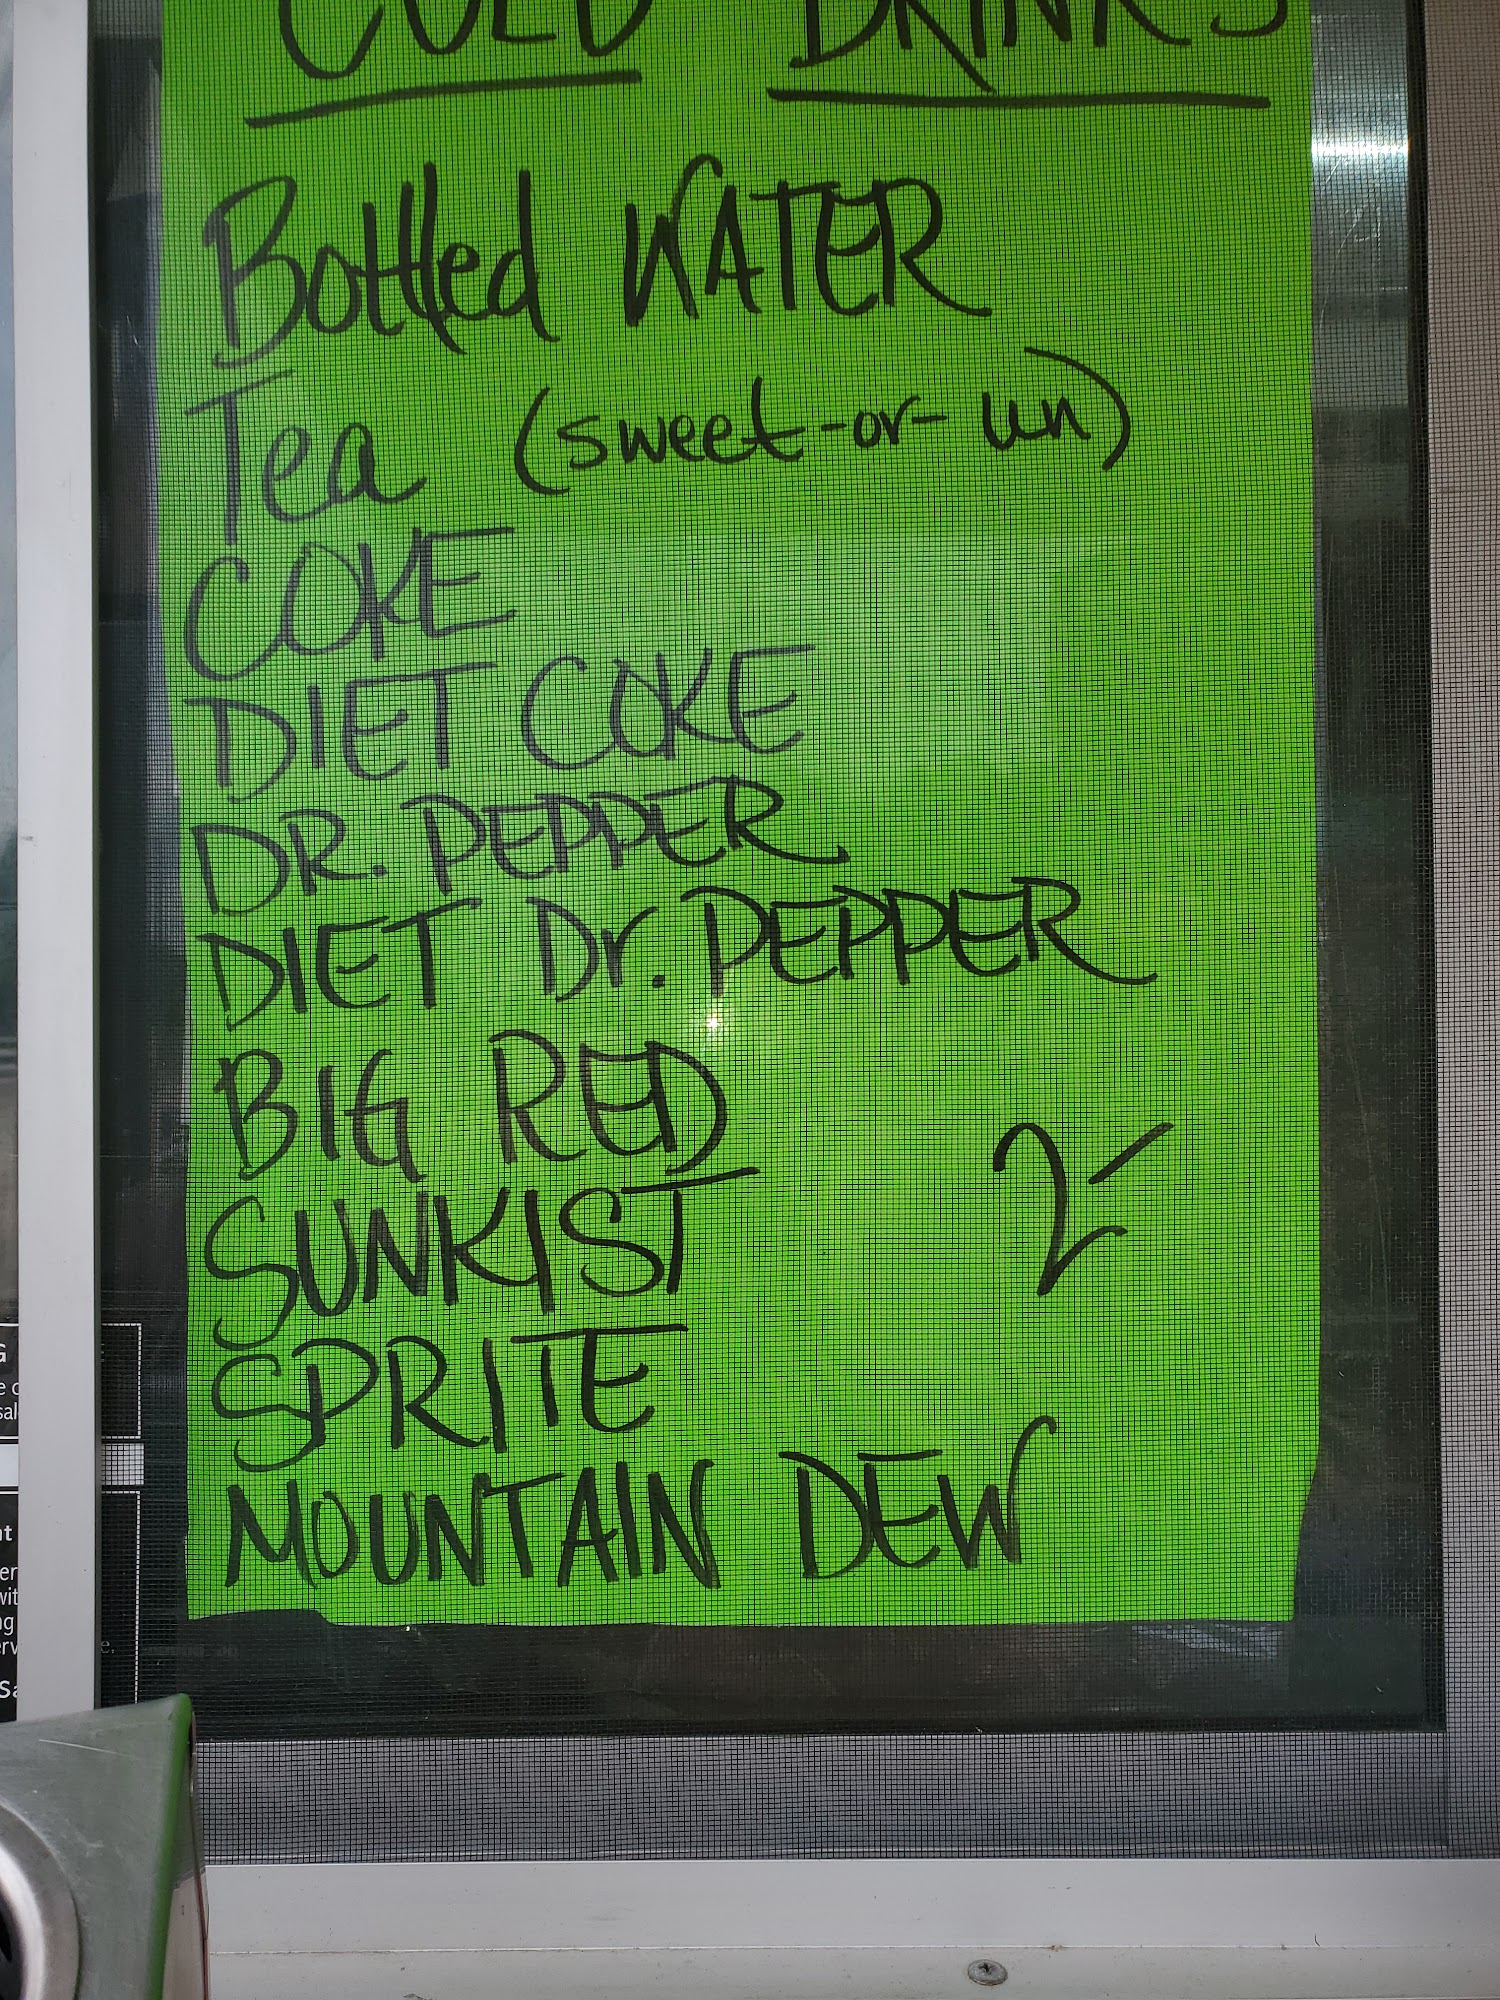 COLD DRINKS
Bottled WATER
Tea (sweet-or-un)
COKE
DIET COKE
DR. PEPPER
DIET Dr. PEPPER
BIG RED
2-
SUNKIST
SPRITE
MOUNTAIN DEW